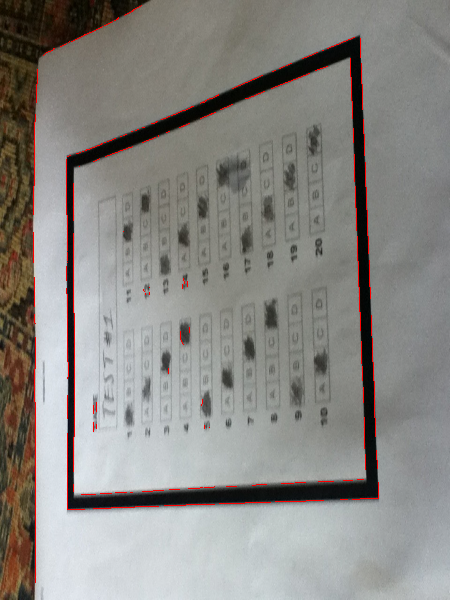 TEST #1
1 B C D
2 A C D
3 A B D
4 A B C
5 B C D
6 A C D
7 A B D
8 A B C
9 B C D
10 A C D
11 A B D
12 A B C
13 B C D
14 A C D
15 A B D
16 A B C
17
18 A C D
19 A B D
20 A B C